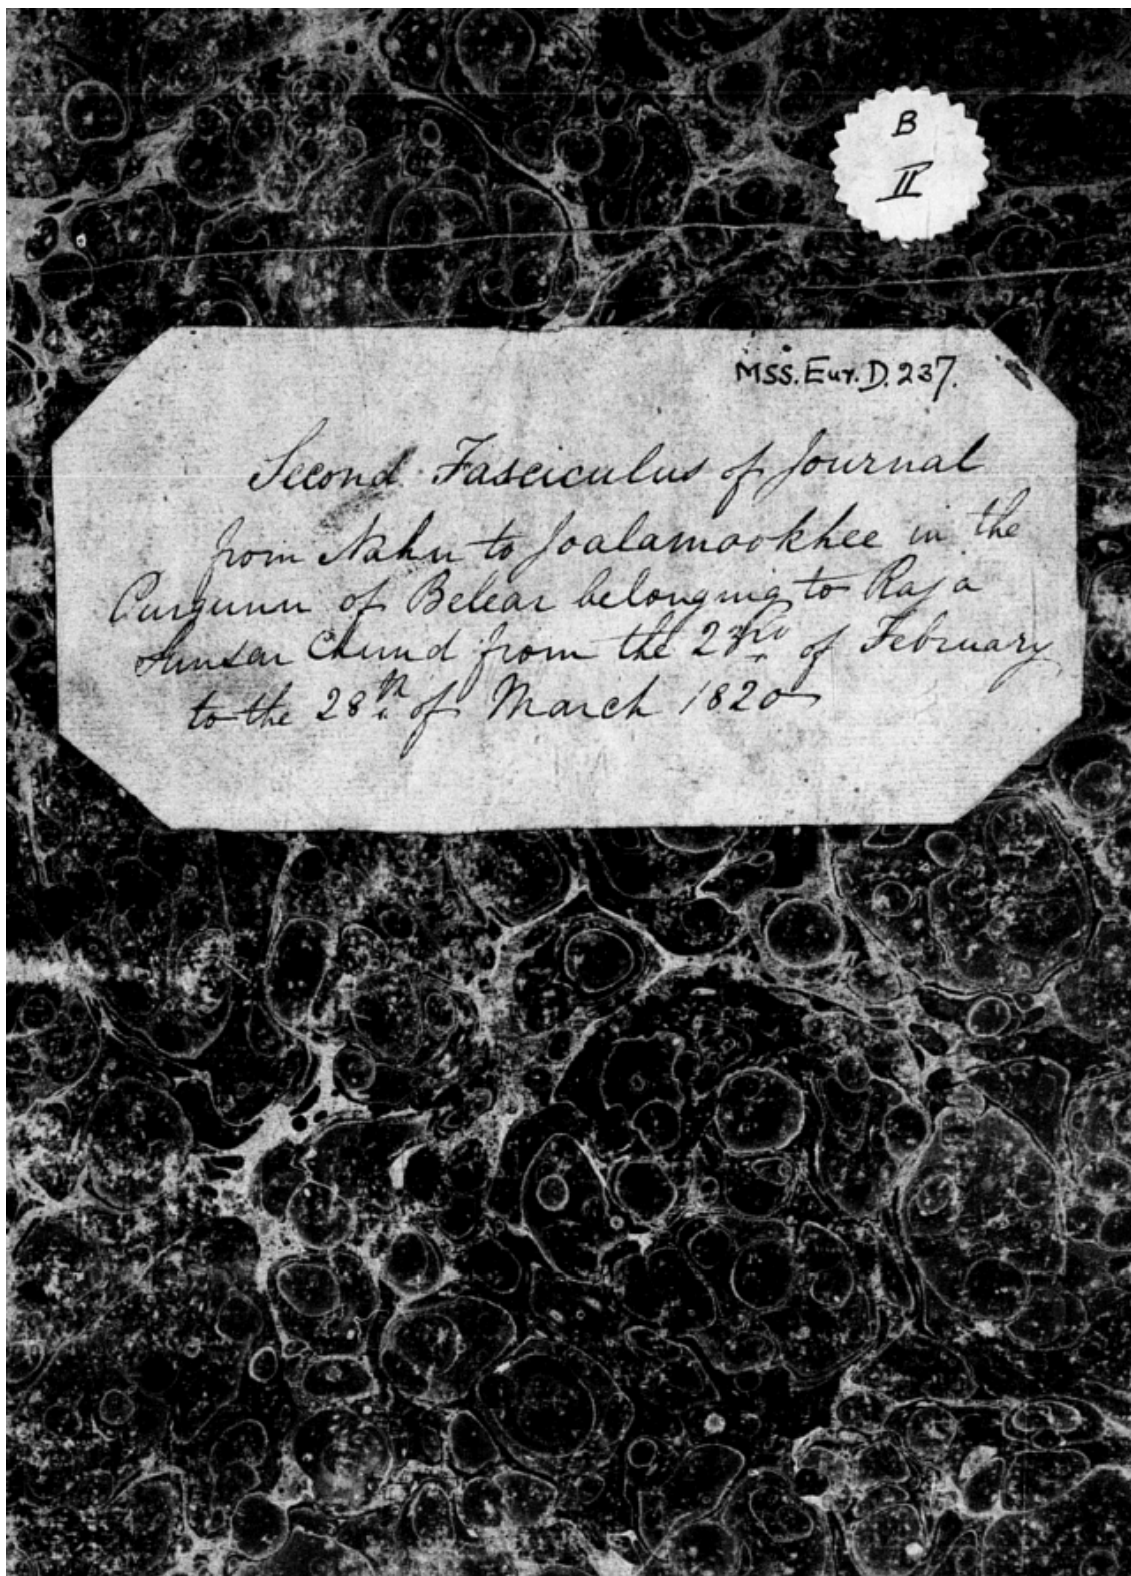 B
II
MSS. Eur. D. 237.
Second Fasciculus of Journal
from Nahn to Joalamookhee in the
Purgunn of Belear belonging to Raja
Sunsar Chund from the of February
to the 28th of March 1820